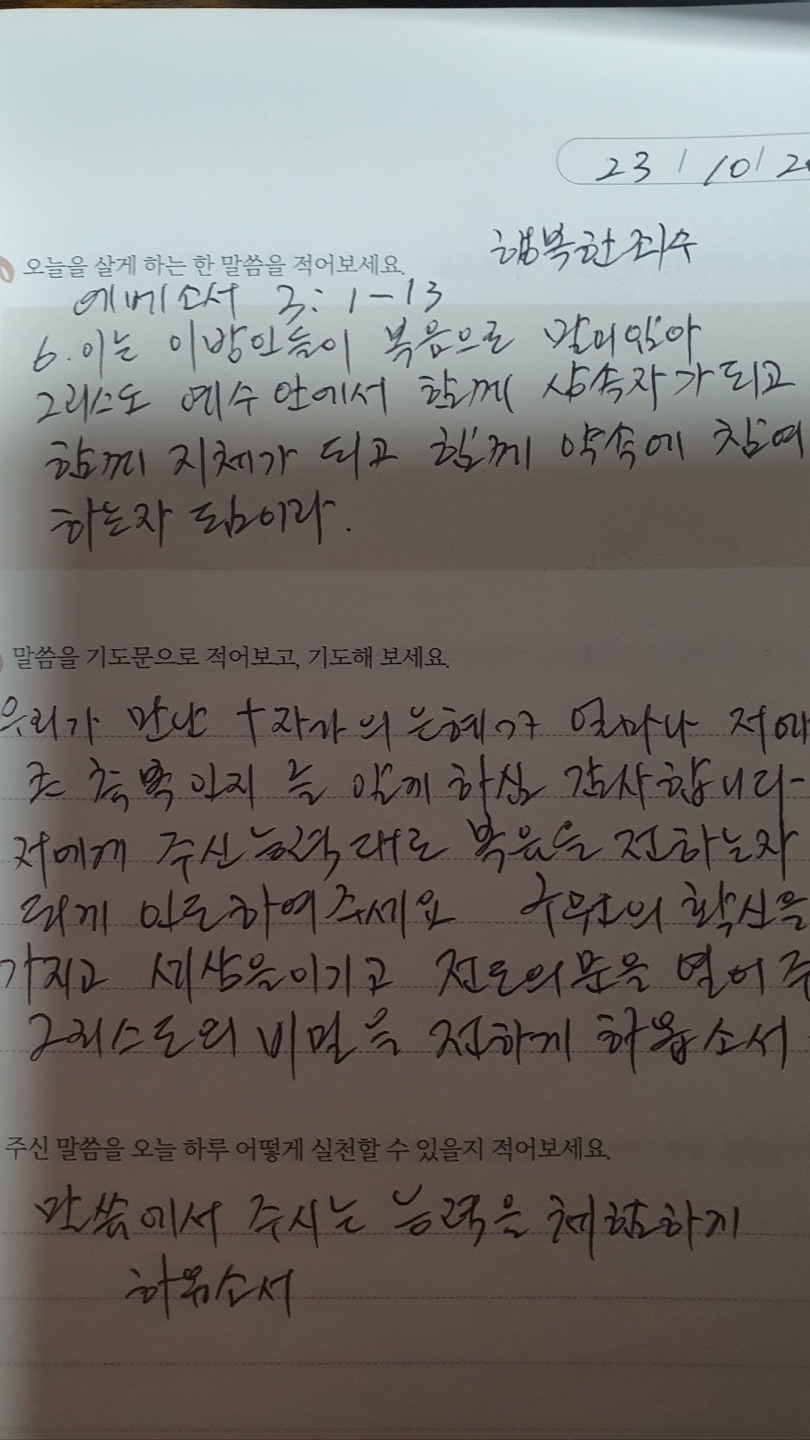 23 / 10 / 2
행복한 죄수
오늘을 살게 하는 한 말씀을 적어보세요.
에베소서 3: 1-13
6. 이는 이방인들이 복음으로 말미암아
그리스도 예수 안에서 함께 상속자가 되고
함께 지체가 되고 함께 약속에 참여
하는자 됨이라.
말씀을 기도문으로 적어보고, 기도해 보세요.
우리가 만난 十자가의 은혜가 얼마나
축복인지 를 알게 하심 감사합니다-
저에게 주신 능력대로 복음을 전하는자
되게 인도하여주세요 구원의 확신을
가지고 세상을이기고 전도의문을 열어주
그리스도의 비밀을 전하게 하옵소서
주신 말씀을 오늘 하루 어떻게 실천할 수 있을지 적어보세요.
말씀에서 주시는 능력을 체험하게
하옵소서